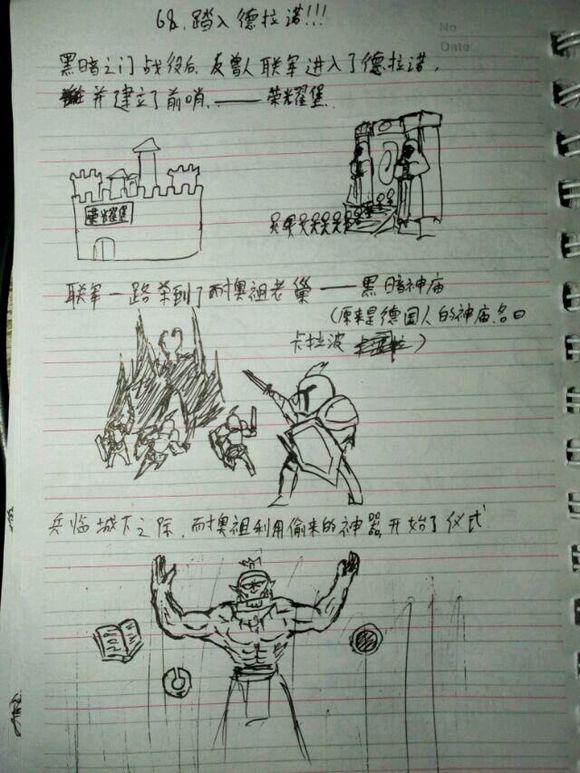 68. 踏入德拉诺!!!
No
Date
黑暗之门战役后,友兽人联军进入了德拉诺,
并建立了前哨——荣耀堡.
荣耀堡
联军一路杀到了耐奥祖老巢——黑暗神庙
(原来是德国人的神庙,名曰
卡拉波)
兵临城下之际,耐奥祖利用偷来的神器,开始了仪式